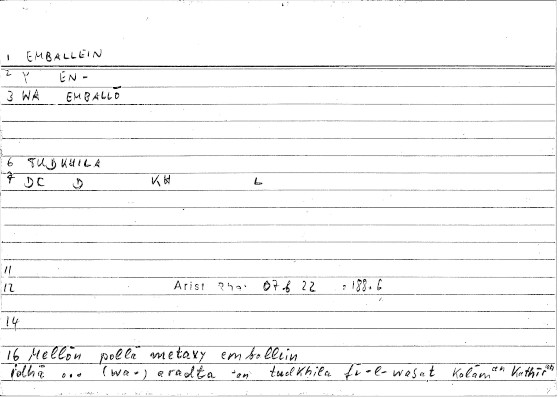 1 EMBALLEIN
2 Y EN-
3 WA EMBALLŌ
6 TUDKHILA
7 DC D KH L
11
12 Arist Rhet 07b 22 188.6
14
16 Mellōn polla metaxy emballein
idhā ... (wa-) aradta an tudkhila fī-l-wasat kalāman kathīran